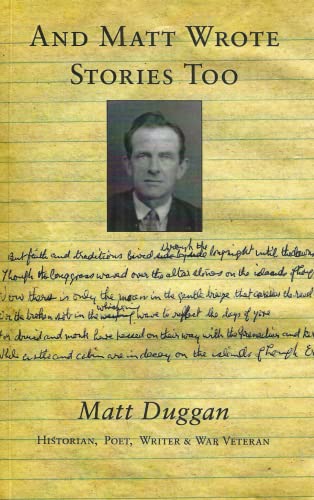 AND MATT WROTE
STORIES TOO
through the
But faith and traditions lived long night until the dawn
Though the long grass waved over the altar stones on the islands of
Now there is only the moon in the gentle breeze that caresses the
whispering
the broken in the wave to reflect the days of yore
For druid and monk have passed on their way with the and
While castle and cabin are in decay on the islands of Lough
Matt Duggan
HISTORIAN, POET, WRITER & WAR VETERAN